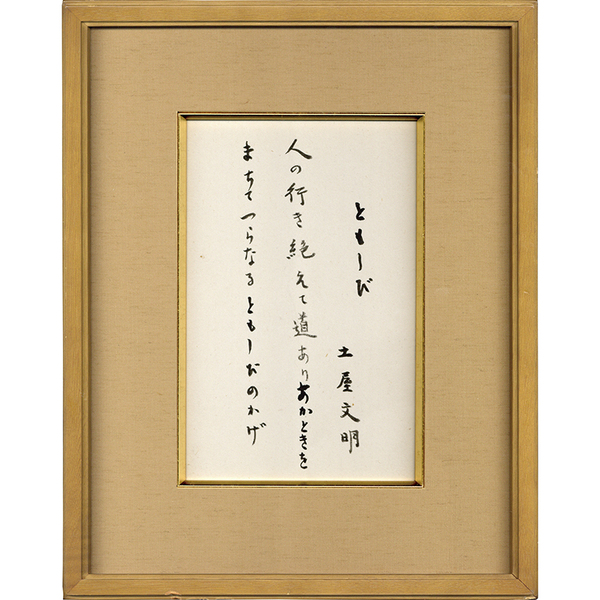 ともしび
土屋文明
人の行き絶えて道ありあかときを
まちてつらなるともしびのかげ